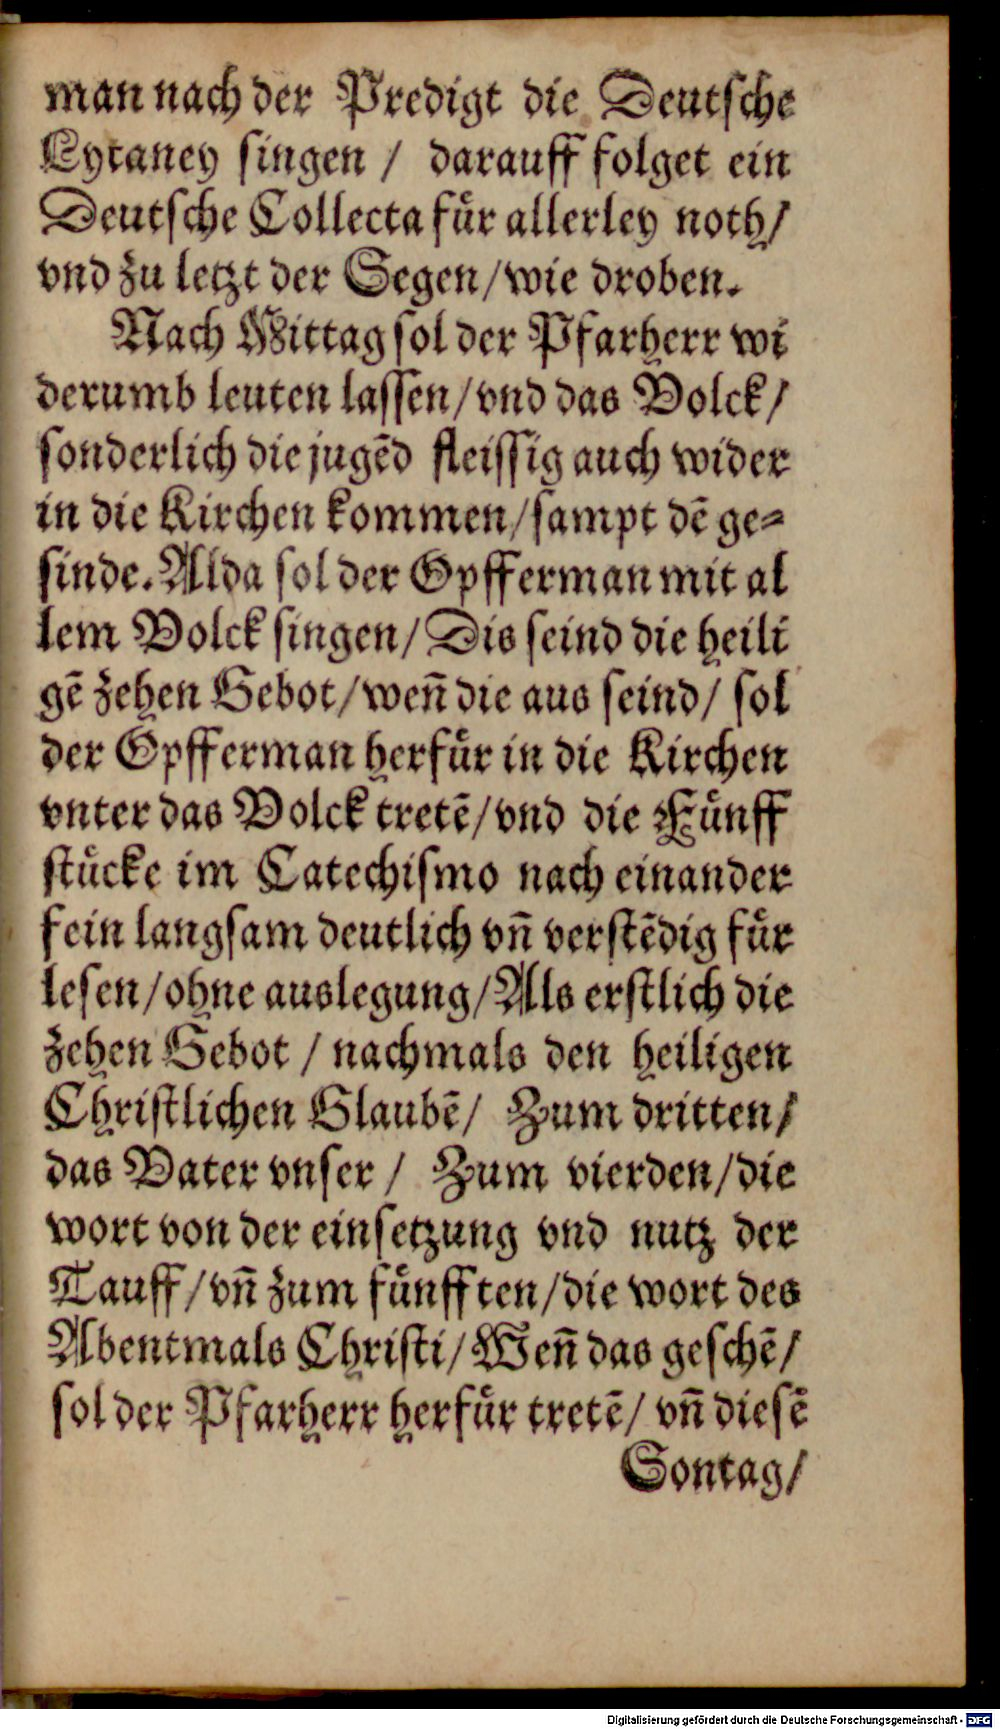 man nach der Predigt die Deutsche
Lytaney singen / darauff folget ein
Deutsche Collecta fuͤr allerley noth/
vnd zu letzt der Segen/wie droben.
Nach Mittag sol der Pfarherr wi
derumb leuten lassen/vnd das Volck/
sonderlich die jugēd fleissig auch wider
in die Kirchen kommen/sampt dē ge-
sinde. Alda sol der Opfferman mit al
lem Volck singen/Dis seind die heili
gē zehen Gebot/weñ die aus seind/ sol
der Opfferman herfuͤr in die Kirchen
vnter das Volck tretē/vnd die Fuͤnff
stuͤcke im Catechismo nach einander
fein langsam deutlich vñ verstēdig fuͤr
lesen/ohne auslegung/Als erstlich die
zehen Gebot / nachmals den heiligen
Christlichen Glaubē/ Zum dritten/
das Vater vnser / Zum vierden/die
wort von der einsetzung vnd nutz der
Tauff/vñ zum fuͤnfften/die wort des
Abentmals Christi/Weñ das geschē/
sol der Pfarherr herfuͤr tretē/ vñ diesē
Sontag/
Digitalisierung gefördert durch die Deutsche Forschungsgemeinschaft - DFG